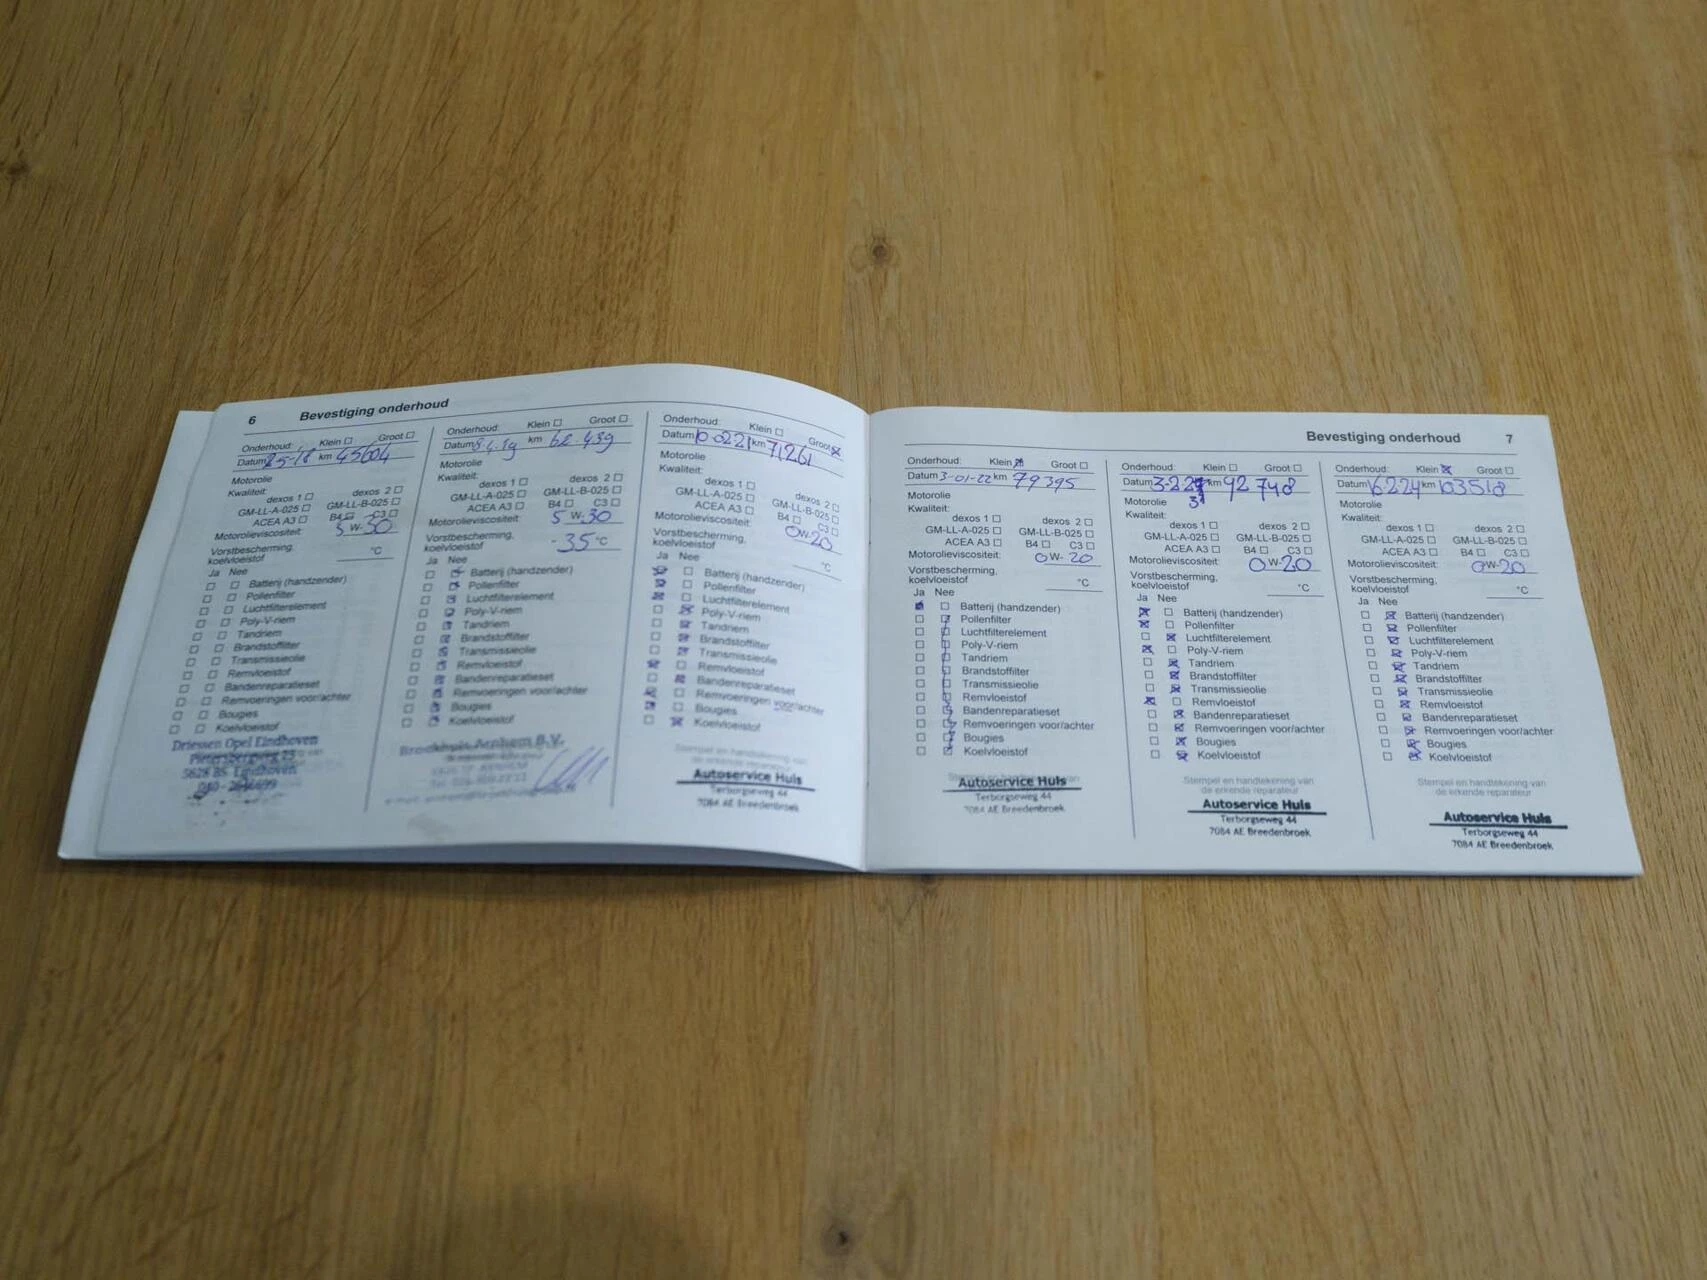 6 Bevestiging onderhoud
Onderhoud: Klein Groot
Datum 25-18 km 45604
Motorolie
Kwaliteit:
dexos 1 dexos 2
GM-LL-A-025 GM-LL-B-025
ACEA A3 B4 C3
Motorolieviscositeit: 5 W-30
Vorstbescherming,
koelvloeistof °C
Ja Nee
Batterij (handzender)
Pollenfilter
Luchtfilterelement
Poly-V-riem
Tandriem
Brandstoffilter
Transmissieolie
Remvloeistof
Bandenreparatieset
Remvoeringen voor/achter
Bougies
Koelvloeistof
Driessen Opel Eindhoven
5628 BS Eindhoven
Onderhoud: Klein Groot
Datum km 62.439
Motorolie
Kwaliteit:
dexos 1 dexos 2
GM-LL-A-025 GM-LL-B-025
ACEA A3 B4 C3
Motorolieviscositeit: 5 W-30
Vorstbescherming,
koelvloeistof -35 °C
Ja Nee
Batterij (handzender)
Pollenfilter
Luchtfilterelement
Poly-V-riem
Tandriem
Brandstoffilter
Transmissieolie
Remvloeistof
Bandenreparatieset
Remvoeringen voor/achter
Bougies
Koelvloeistof
Broekhuis Arnhem B.V.
Onderhoud: Klein Groot
Datum km 71261
Motorolie
Kwaliteit:
dexos 1 dexos 2
GM-LL-A-025 GM-LL-B-025
ACEA A3 B4 C3
Motorolieviscositeit: 0W-20
Vorstbescherming,
koelvloeistof °C
Ja Nee
Batterij (handzender)
Pollenfilter
Luchtfilterelement
Poly-V-riem
Tandriem
Brandstoffilter
Transmissieolie
Remvloeistof
Bandenreparatieset
Remvoeringen voor/achter
Bougies
Koelvloeistof
Stempel en handtekening van
de erkende reparateur
Autoservice Huls
Terborgseweg 44
7084 AE Breedenbroek
Bevestiging onderhoud 7
Onderhoud: Klein Groot
Datum 3-01-22 km 79395
Motorolie
Kwaliteit:
dexos 1 dexos 2
GM-LL-A-025 GM-LL-B-025
ACEA A3 B4 C3
Motorolieviscositeit: 0W-20
Vorstbescherming,
koelvloeistof °C
Ja Nee
Batterij (handzender)
Pollenfilter
Luchtfilterelement
Poly-V-riem
Tandriem
Brandstoffilter
Transmissieolie
Remvloeistof
Bandenreparatieset
Remvoeringen voor/achter
Bougies
Koelvloeistof
Autoservice Huls
Terborgseweg 44
7084 AE Breedenbroek
Onderhoud: Klein Groot
Datum km 92748
Motorolie
Kwaliteit:
dexos 1 dexos 2
GM-LL-A-025 GM-LL-B-025
ACEA A3 B4 C3
Motorolieviscositeit: 0W-20
Vorstbescherming,
koelvloeistof °C
Ja Nee
Batterij (handzender)
Pollenfilter
Luchtfilterelement
Poly-V-riem
Tandriem
Brandstoffilter
Transmissieolie
Remvloeistof
Bandenreparatieset
Remvoeringen voor/achter
Bougies
Koelvloeistof
Stempel en handtekening van
de erkende reparateur
Autoservice Huls
Terborgseweg 44
7084 AE Breedenbroek
Onderhoud: Klein Groot
Datum 16-2-24 km 103518
Motorolie
Kwaliteit:
dexos 1 dexos 2
GM-LL-A-025 GM-LL-B-025
ACEA A3 B4 C3
Motorolieviscositeit: 0W-20
Vorstbescherming,
koelvloeistof °C
Ja Nee
Batterij (handzender)
Pollenfilter
Luchtfilterelement
Poly-V-riem
Tandriem
Brandstoffilter
Transmissieolie
Remvloeistof
Bandenreparatieset
Remvoeringen voor/achter
Bougies
Koelvloeistof
Stempel en handtekening van
de erkende reparateur
Autoservice Huls
Terborgseweg 44
7084 AE Breedenbroek